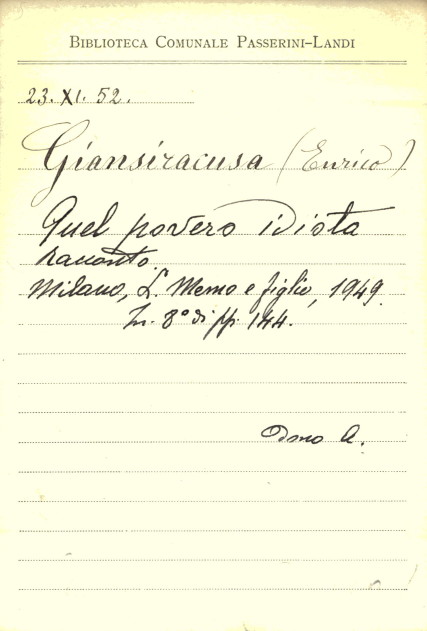 BIBLIOTECA COMUNALE PASSERINI-LANDI
23. XI. 52.
Giansiracusa (Enrico)
Quel povero idiota
racconto.
Milano, L. Memo e figlio, 1949.
In. 8º di pp. 144.
Dono A.